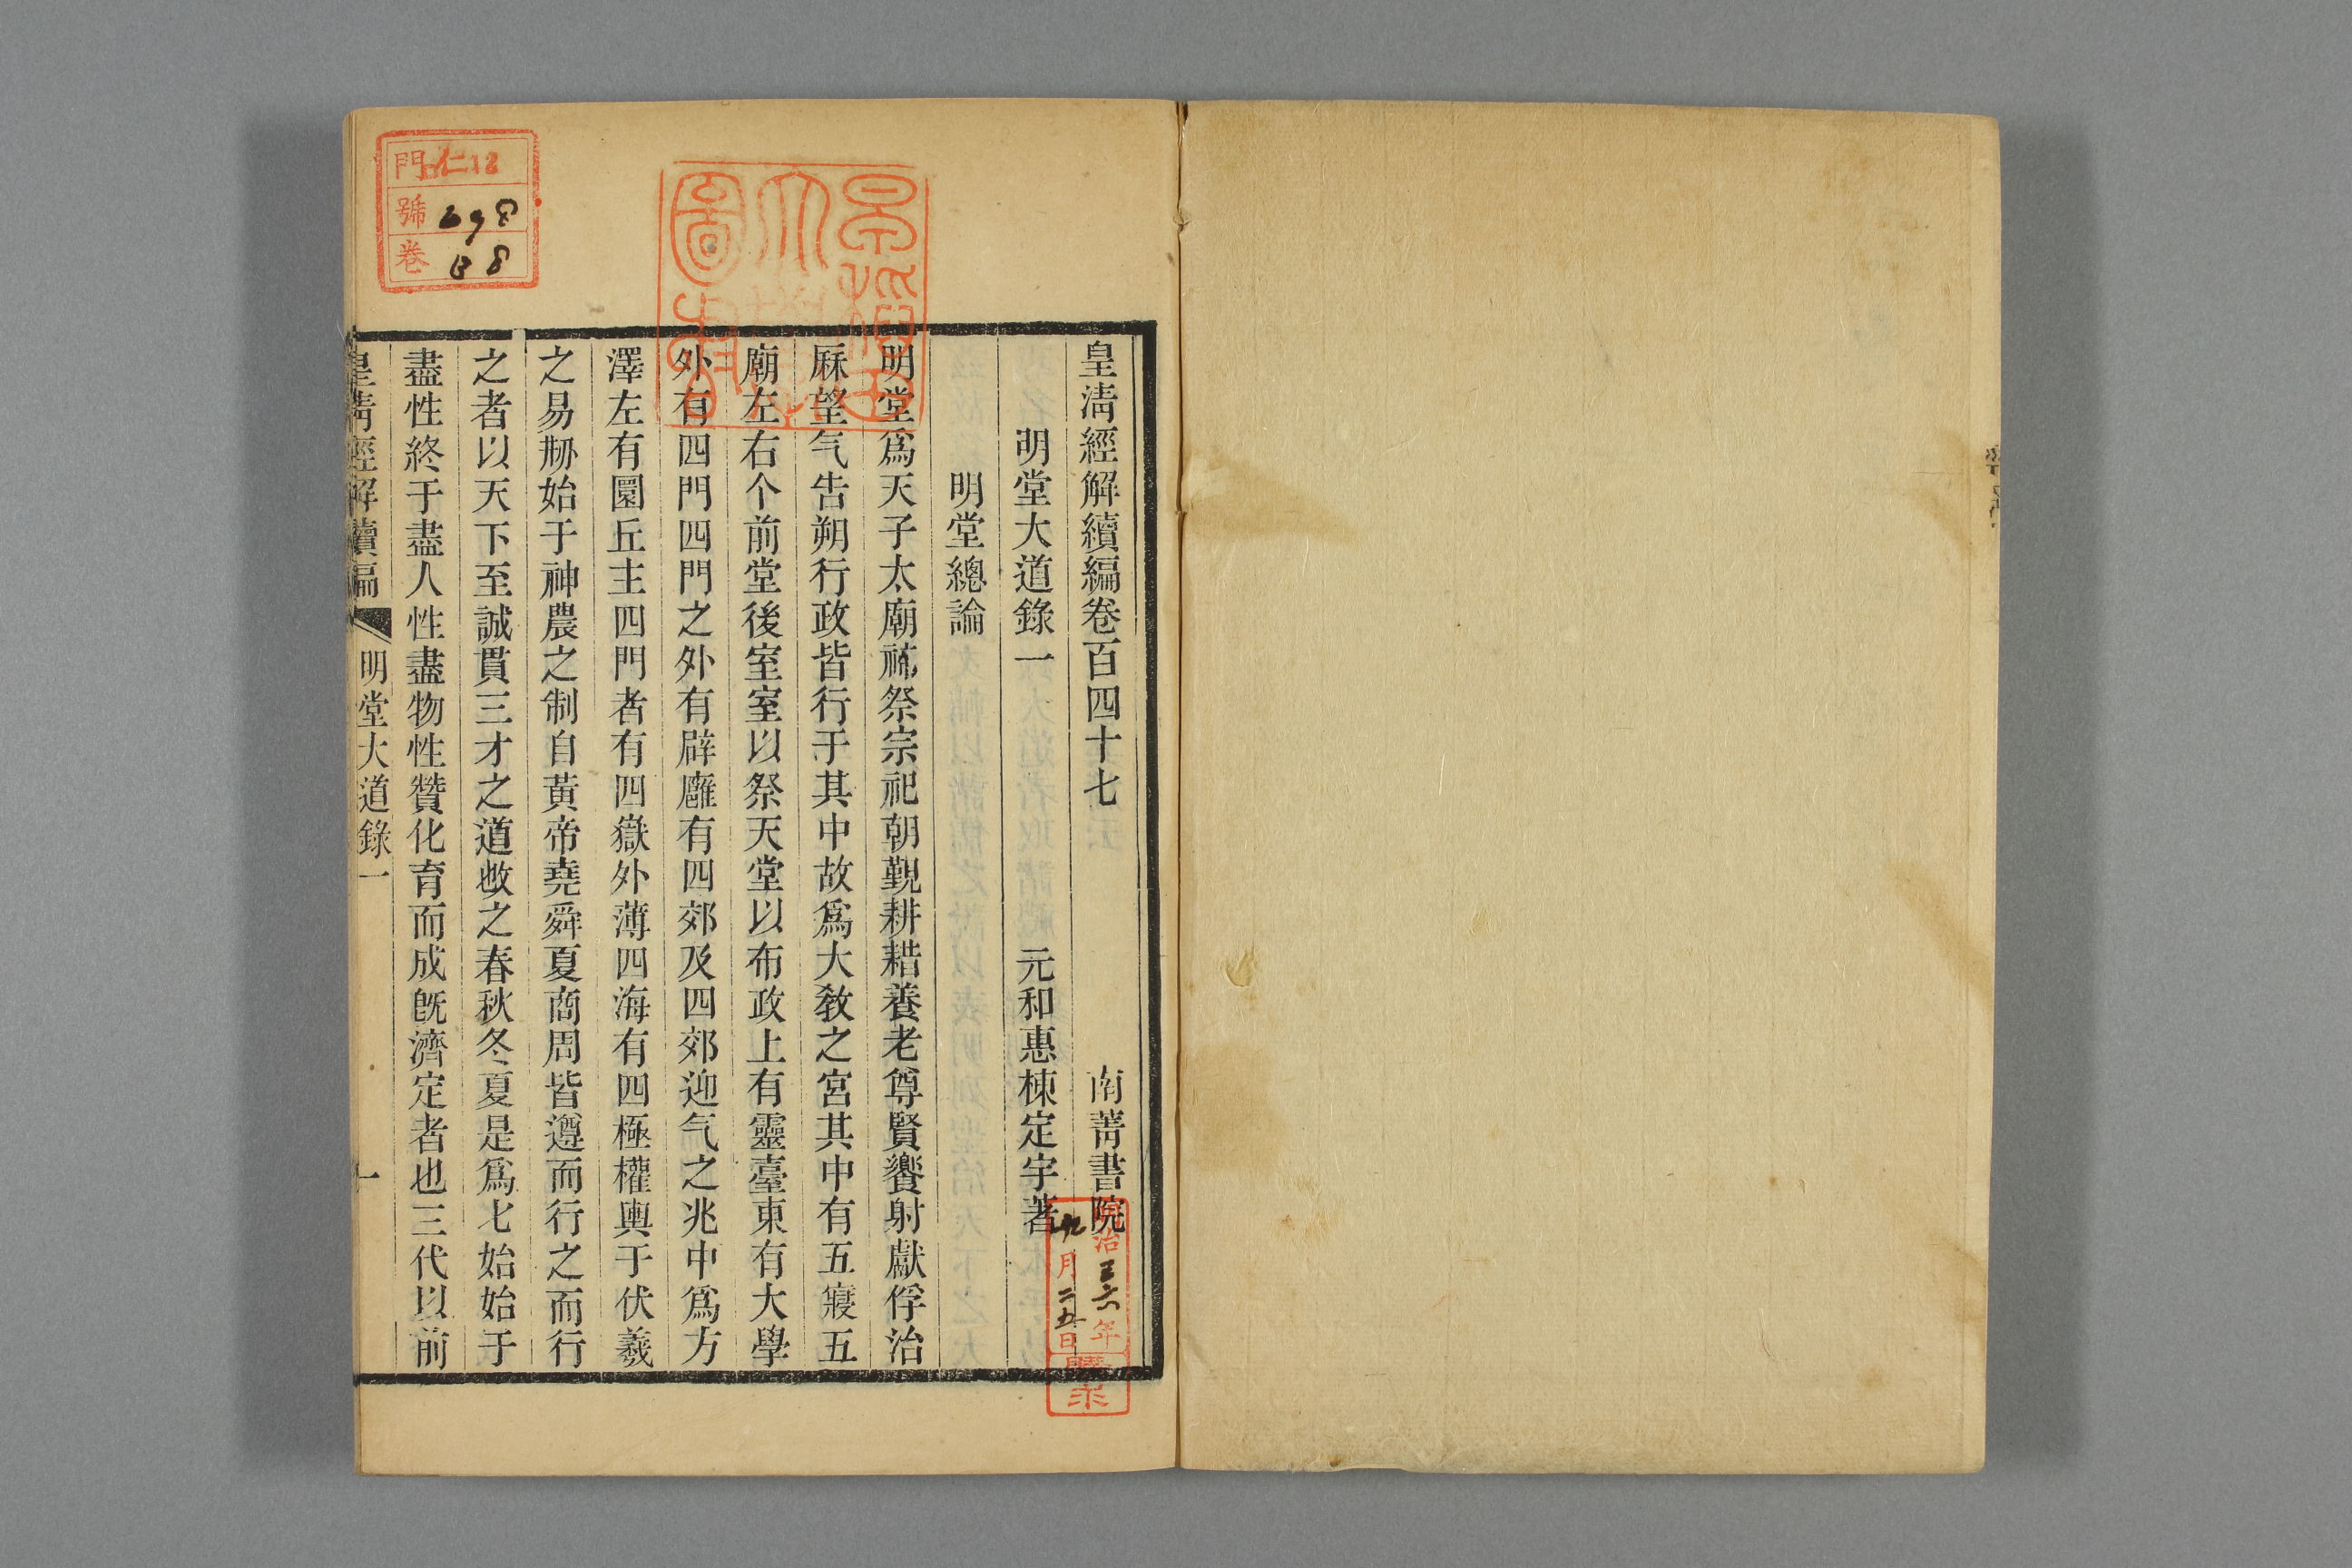 皇清經解續編卷百四十七
南菁書院
明堂大道錄一
元和惠棟定宇著
明堂總論
明堂爲天子太廟禘祭宗祀朝覲耕耤養老尊賢饗射獻俘治
厤望气告朔行政皆行于其中故爲大敎之宮其中有五寢五
廟左右个前堂後室室以祭天堂以布政上有靈臺東有大學
外有四門四門之外有辟廱有四郊及四郊迎气之兆中爲方
澤左有圜丘主四門者有四嶽外薄四海有四極權輿于伏羲
之易刱始于神農之制自黃帝堯舜夏商周皆遵而行之而行
之者以天下至誠貫三才之道㪅之春秋冬夏是爲七始始于
盡性終于盡人性盡物性贊化育而成旣濟定者也三代以前
皇清經解續編
明堂大道錄一
一
門 仁12
號 698
卷 138
早稻田大學圖書
明治三六年
九月二五日
購求